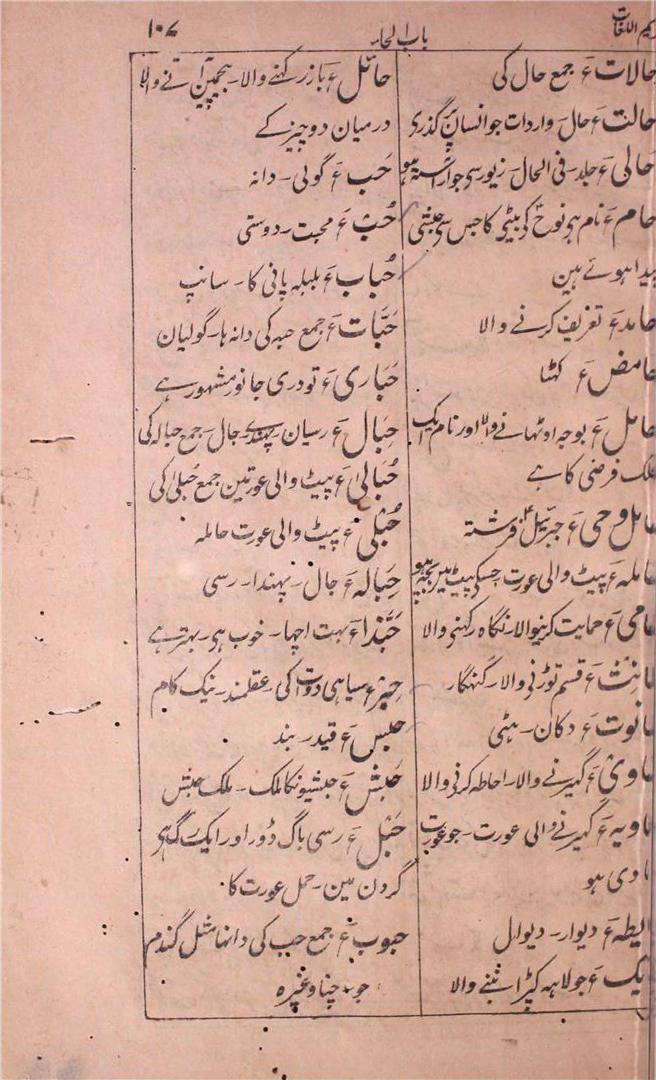 کریم اللغات
باب الحاء
۱۰۷
حالات ع جمع حال کی
حالت ع حال۔ واردات جو انسان پر گذری
حالی ع جلد۔ فی الحال۔ زیور سی جو آراستہ ہو
حام ع نام ہی نوح کی بیٹی کا جس سی حبشی
پیدا ہوئے ہین
حامد ع تعریف کرنے والا
حامض ع کھٹا
حامل ع بوجھ اوٹھانے والا اور نام ایک
ملک فرضی کا ہے
حامل وحی ع جبرئیل فرشتہ
حاملہ ع پیٹ والی عورت جسکی پیٹ مین بچہ ہو
حامی ع حمایت کرنیوالا۔ نگاہ رکھنی والا
حانث ع قسم توڑنی والا۔ گنہگار
حانوت ع دکان۔ ہٹی
حاوی ع گھیرنے والا۔ احاطہ کرنی والا
حاویہ ع گھیرنے والی عورت۔ جو عورت
حادی ہو
حایطہ ع دیوار۔ دیوال
حایک ع جولاہہ کپڑا بننے والا
حائل ع باز رکھنے والا۔ بیچ مین آنے والا
درمیان دو چیز کے
حَب ع گولی۔ دانہ
حُب ع محبت۔ دوستی
حُباب ع بلبلہ پانی کا۔ سانپ
حَبّات ع جمع حبہ کی دانہ ہا۔ گولیان
حُباری ع تودری جانور مشہور ہے
حِبال ع رسیان۔ پھندے جال۔ جمع حبالہ کی
حُبالیٰ ع پیٹ والی عورتین جمع حُبلیٰ کی
حُبلی ع پیٹ والی عورت حاملہ
حِبالہ ع جال۔ پھندا۔ رسی
حَبّذا ع بہت اچھا۔ خوب ہی۔ بہتر ہے
حبر ع سیاہی دوات کی۔ عقلمند۔ نیک کام
حبس ع قید۔ بند
حَبش ع حبشیونکا ملک۔ ملک حبش
حَبْل ع رسی باگ ڈور اور ایک رگ ہی
گردن مین۔ حمل عورت کا
حبوب ع جمع حب کی دانہا مثل گندم
جو۔ چنا وغیرہ